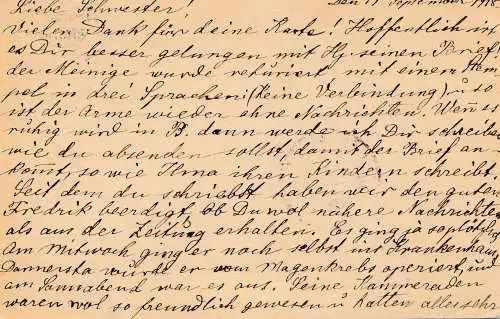 Liebe Schwester! Den 17 September 1918
Vielen Dank für deine Karte! Hoffentlich ist
es Dir besser gelungen mit Hj. seinen Brief
der Meinige wurde returiert mit einem Stem-
pel in drei Sprachen: (Keine Verbindung) u so
ist der Arme wieder ohne Nachrichten. Wenn es
ruhig wird in B. dann werde ich Dir schreiben
wie du absenden sollst, damit der Brief an-
kom̄t, so wie Ilma ihren Kindern schreibt.
Seit dem du schriebst haben wir den guten
Fredrik beerdigt, ob Du wol nähere Nachrichten
als aus der Zeitung erhalten. Es ging ja so plötzlich
am Mitwoch ging er noch selbst ins Krankenhaus,
Donnersta wurde er vom Magenkrebs operiert, und
am Sonnabend war es aus. Seine Kammeraden
waren wol so freundlich gewesen u hatten alles sehr